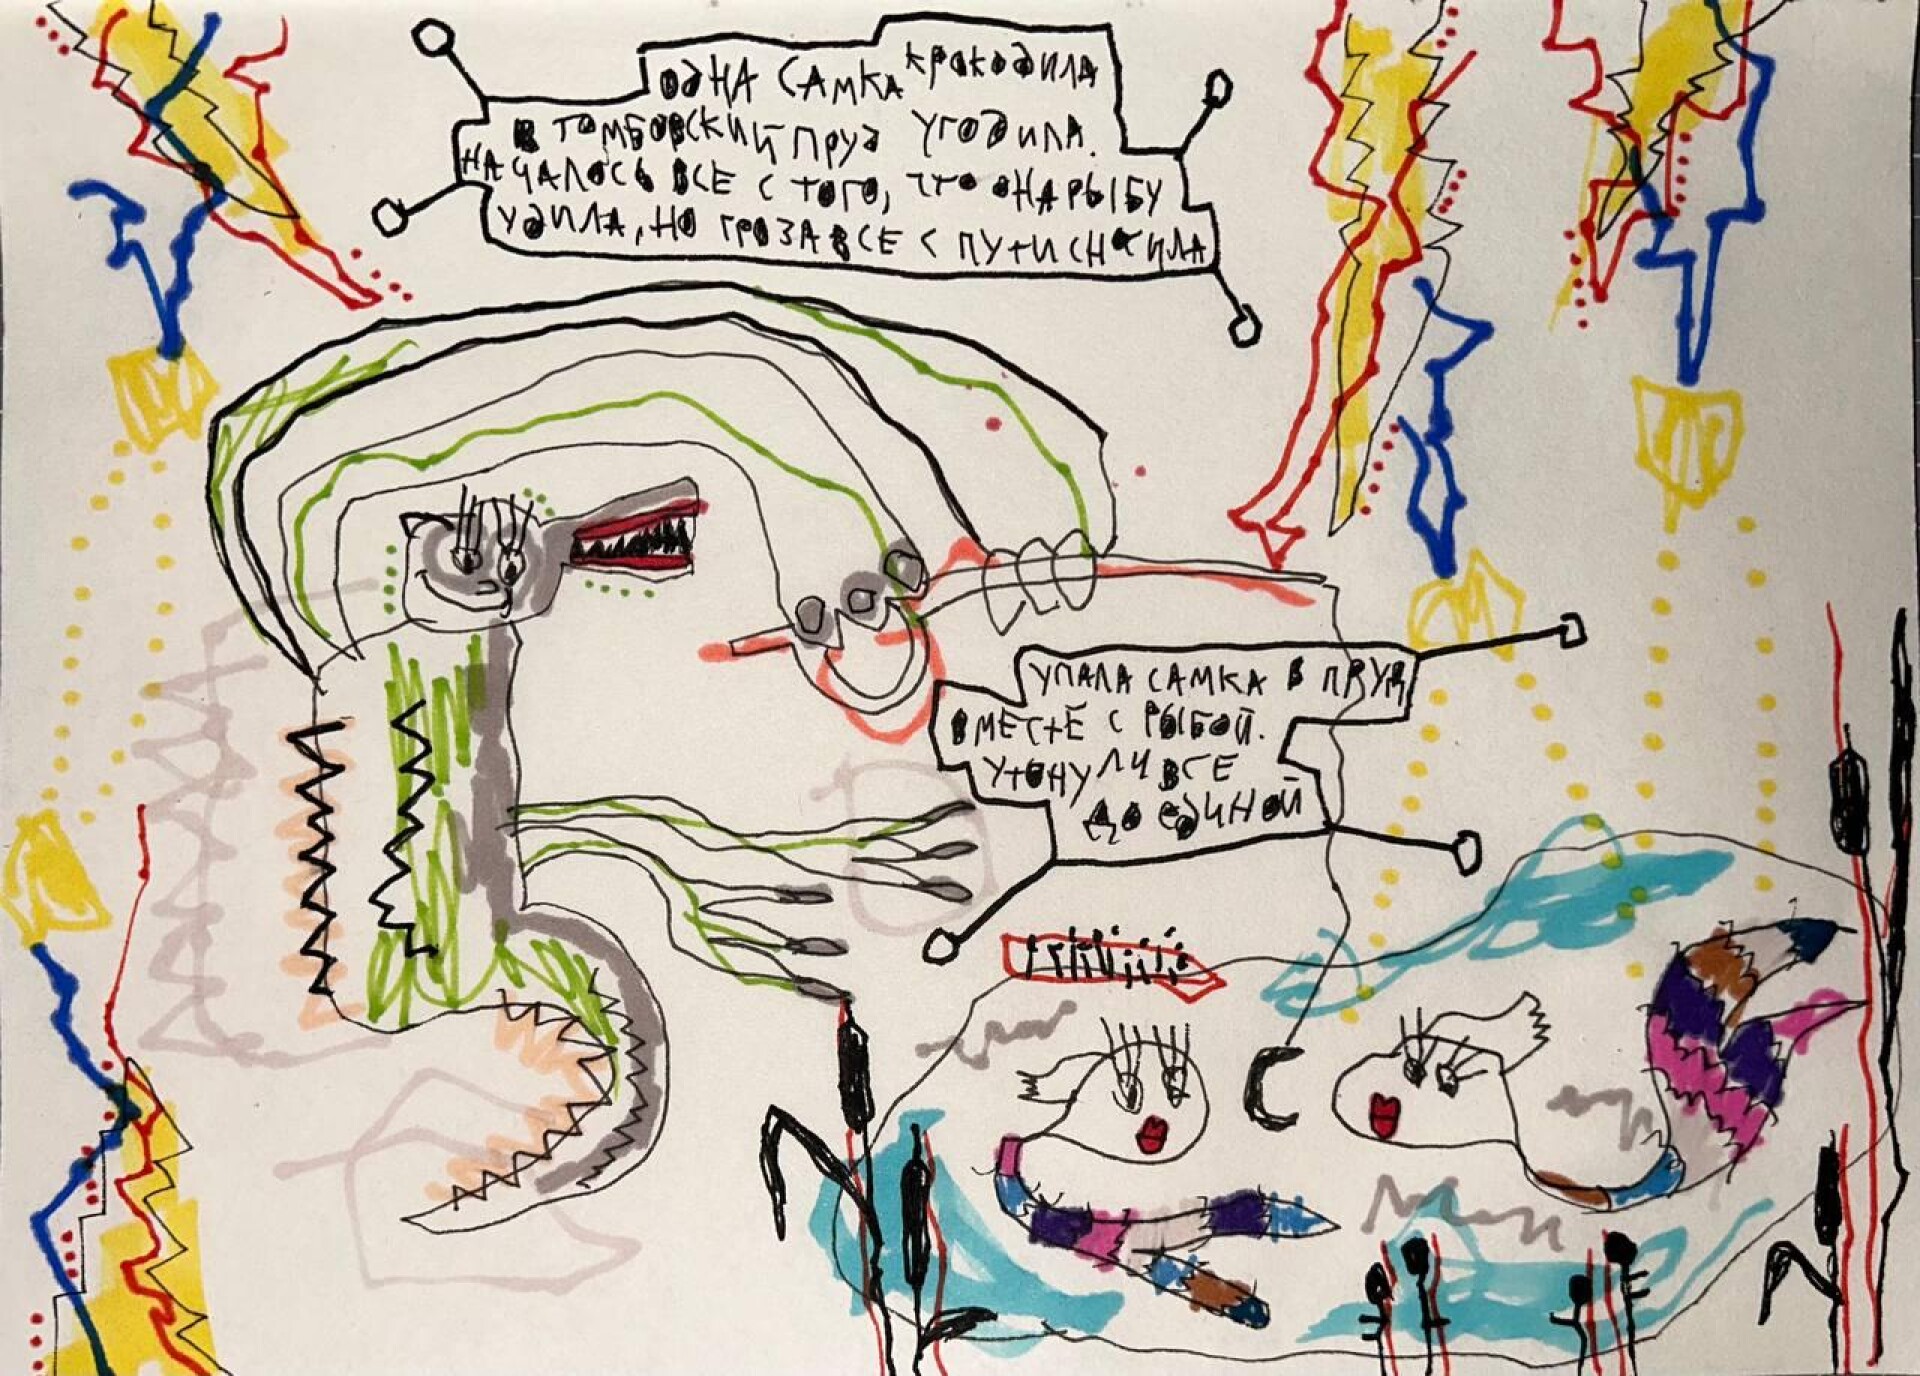 ОДНА САМКА КРОКОДИЛА
В ТАМБОВСКИЙ ПРУД УГОДИЛА.
НАЧАЛОСЬ ВСЕ С ТОГО, ЧТО ОНА РЫБУ
УДИЛА, НО ГРОЗА ВСЕ С ПУТИ СНОСИЛА
УПАЛА САМКА В ПРУД
ВМЕСТЕ С РЫБОЙ.
УТОНУЛИ ВСЕ
ДО ЕДИНОЙ